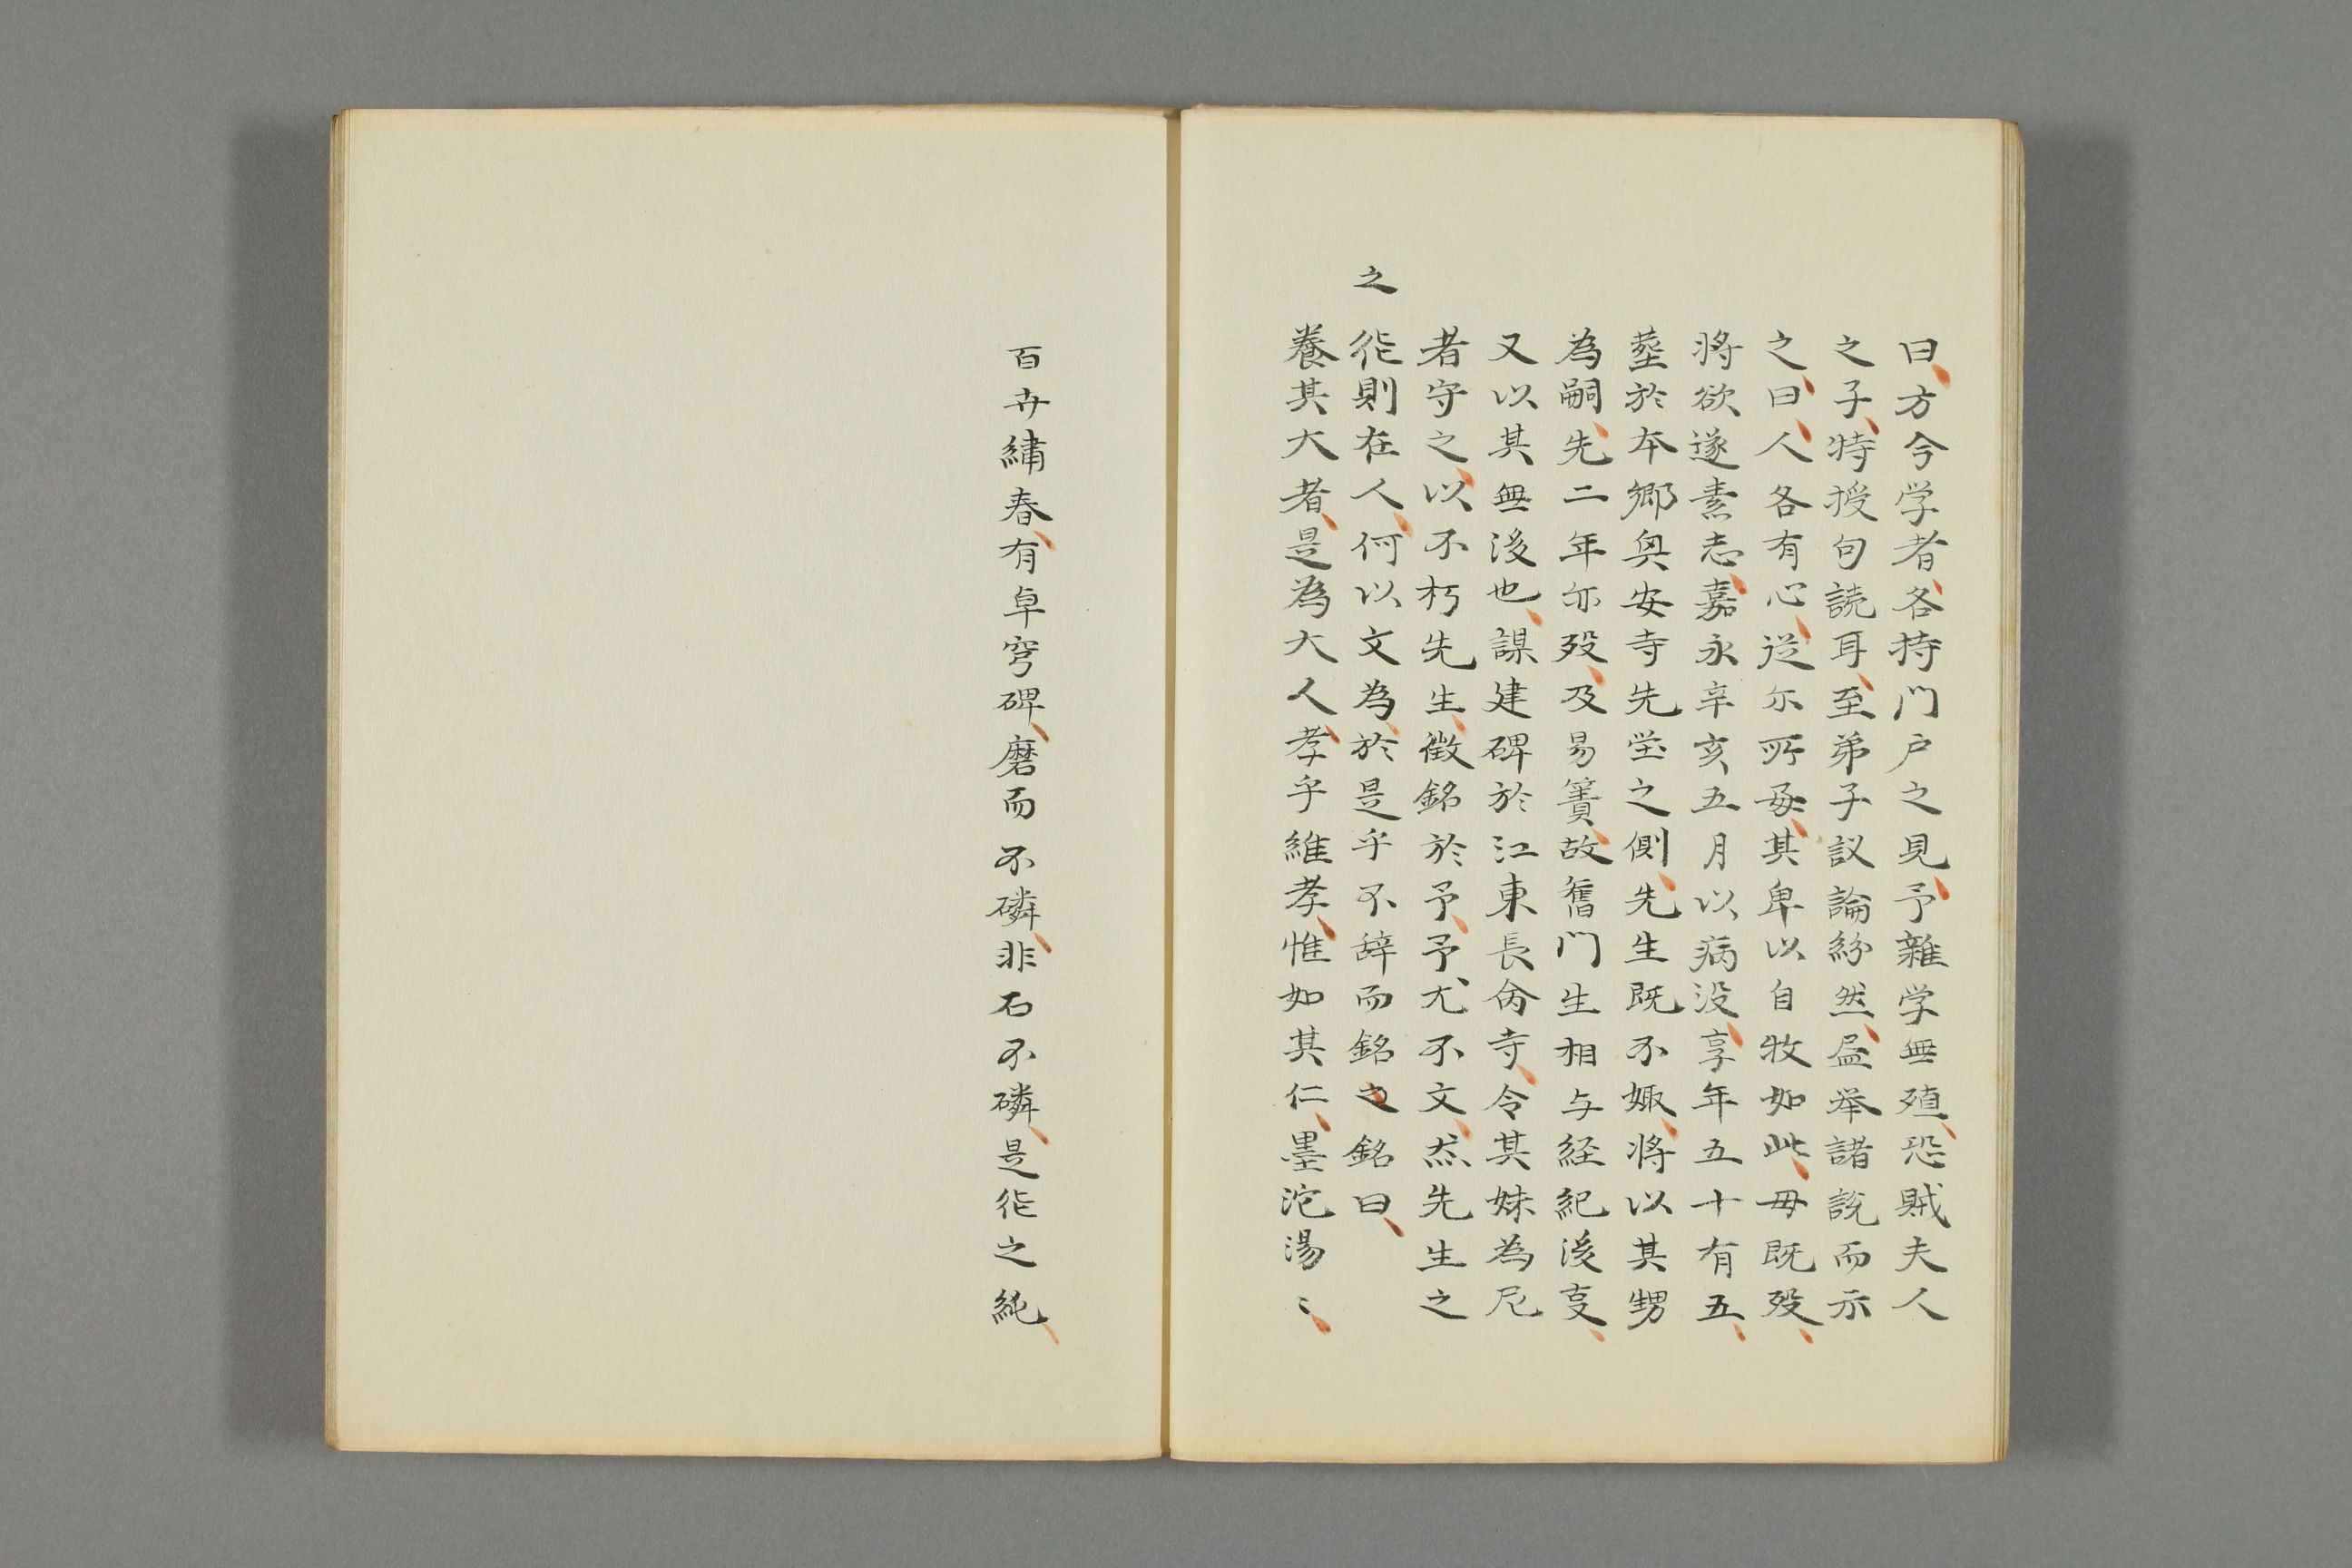 曰、方今学者、各持門戸之見、予雜学無殖、恐賊夫人
之子、特授句読耳、至弟子議論紛然、盡挙諸説而示
之、曰、人各有心、従尓所好、其卑以自牧如此、毋既歿、
將欲遂素志、嘉永辛亥五月以病没、享年五十有五、
塟於本郷奥安寺先塋之側、先生既不娵、將以其甥
為嗣、先二年亦歿、及易簀、故舊門生相与経紀後事、
又以其無後也、謀建碑於江東長命寺、令其妹為尼
者守之、以不朽先生、徴銘於予、予、尤不文、然先生之
之
徳則在人、何以文為、於是乎不辞而銘之銘曰、
養其大者、是為大人、孝乎維孝、惟如其仁、墨沱湯〻、
百卉繍春、有卓穹碑、磨而不磷、非石不磷、是徳之純、